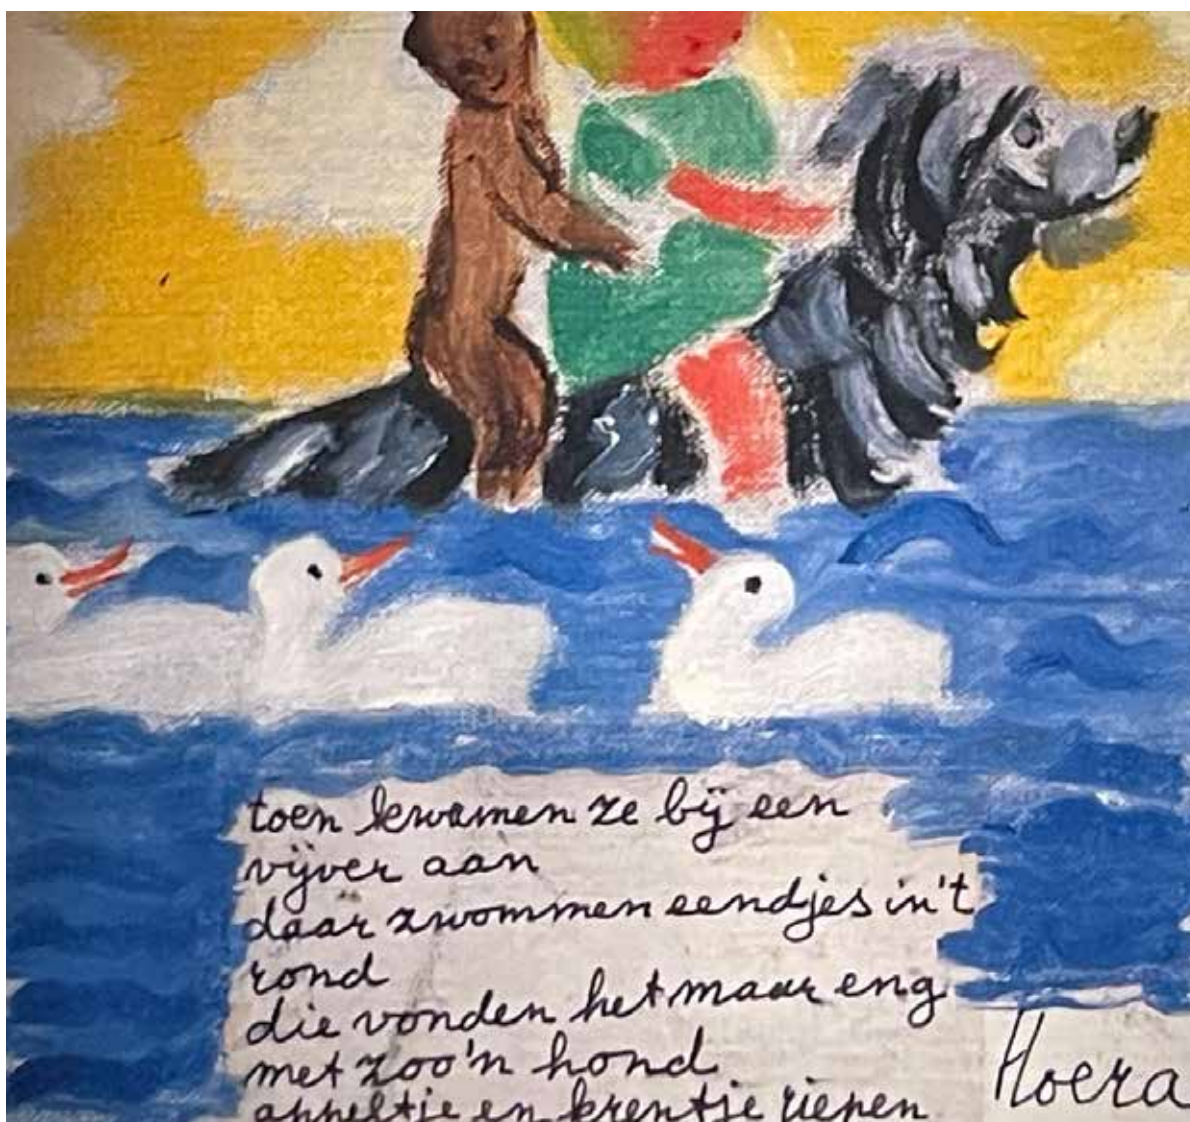 toen kwamen ze bij een
vijver aan
daar zwommen eendjes in 't
rond
die vonden het maar eng
met zoo'n hond
appeltje en krentje riepen
Hoera